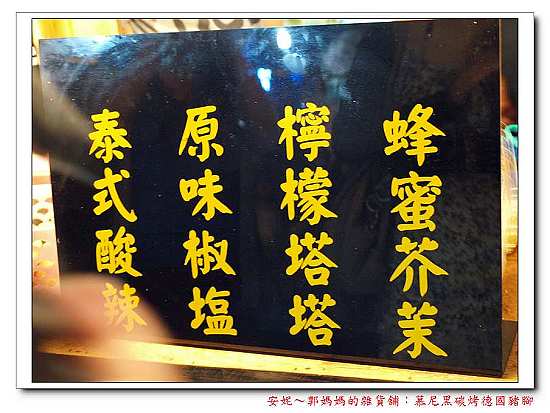 蜂蜜芥茉
檸檬塔塔
原味椒塩
泰式酸辣
安妮～郭媽媽的雜貨舖：慕尼黑碳烤德國豬腳